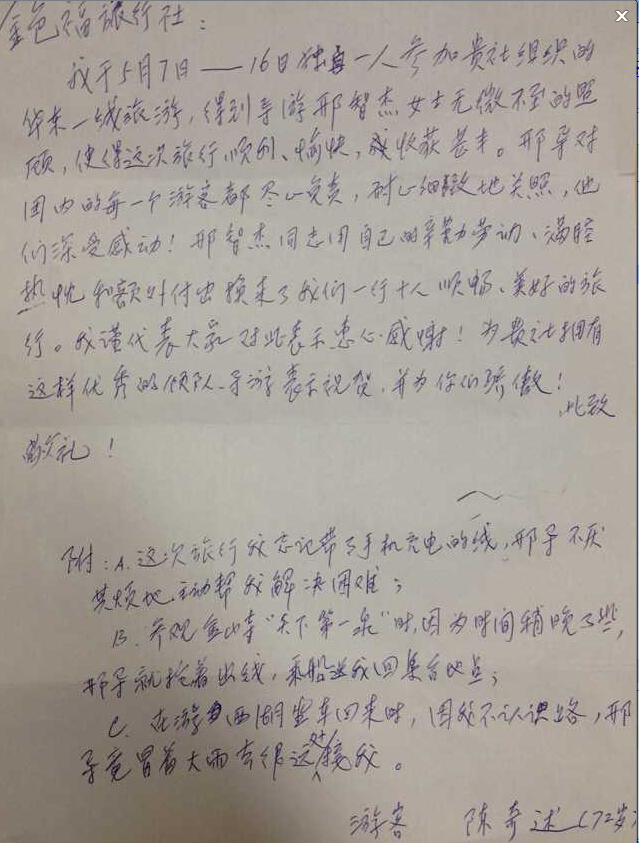 金色福旅行社：
我于5月7日——16日独自一人参加贵社组织的
华东一线旅游，得到导游邢智杰女士无微不至的照
顾，使得这次旅行顺利、愉快，我收获甚丰。邢导对
团内的每一个游客都尽心负责，耐心细致地关照，他
们深受感动！邢智杰同志用自己的辛勤劳动、满腔
热忱和额外付出换来了我们一行十人顺畅、美好的旅
行。我谨代表大家对此表示衷心感谢！为贵社拥有
这样优秀的领队、导游表示祝贺，并为你们骄傲！
此致
敬礼！
附：A.这次旅行我忘记带了手机充电的线，邢导不厌
其烦地主动帮我解决困难；
B.参观金山寺“天下第一泉”时，因为时间稍晚了些，
邢导就抢着出钱，乘船送我回集合地点；
C.在游西湖坐车回来时，因我不认识路，邢
导竟冒着大雨去很远处接我。
游客 陈奇述（72岁）